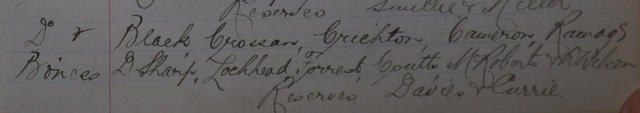 Reserves Smellie & Miller
Do & Black Crossan, Crichton, Cameron, Ramage
D Sharp, Lochhead, Forrest, Coutts McRoberts & Wilson
Reserves Davies & Currie.